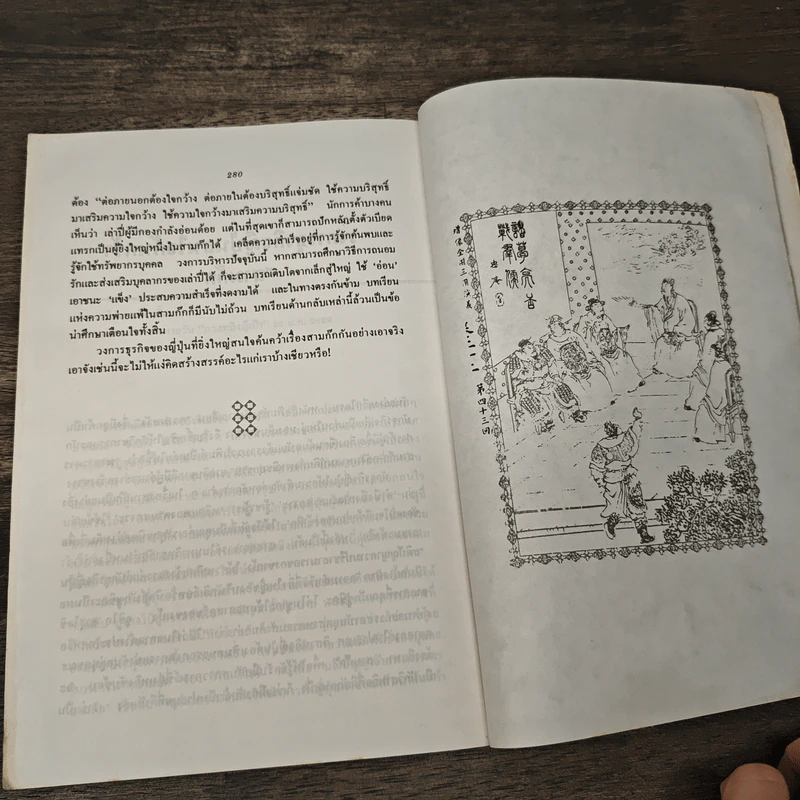 280
ต้อง “ต่อภายนอกต้องใจกว้าง ต่อภายในต้องบริสุทธิ์แจ่มชัด ใช้ความบริสุทธิ์
มาเสริมความใจกว้าง ใช้ความใจกว้างมาเสริมความบริสุทธิ์” นักการค้าบางคน
เห็นว่า เล่าปี่ผู้มีกองกำลังอ่อนด้อย แต่ในที่สุดเขาก็สามารถปักหลักตั้งตัวเบียด
แทรกเป็นผู้ยิ่งใหญ่หนึ่งในสามก๊กได้ เคล็ดความสำเร็จอยู่ที่การรู้จักค้นพบและ
รู้จักใช้ทรัพยากรบุคคล วงการบริหารปัจจุบันนี้ หากสามารถศึกษาวิธีการถนอม
รักและส่งเสริมบุคลากรของเล่าปี่ได้ ก็จะสามารถเติบโตจากเล็กสู่ใหญ่ ใช้ ‘อ่อน’
เอาชนะ ‘แข็ง’ ประสบความสำเร็จที่งดงามได้ และในทางตรงกันข้าม บทเรียน
แห่งความพ่ายแพ้ในสามก๊กก็มีนับไม่ถ้วน บทเรียนด้านกลับเหล่านี้ล้วนเป็นข้อ
น่าศึกษาเตือนใจทั้งสิ้น
วงการธุรกิจของญี่ปุ่นที่ยิ่งใหญ่สนใจค้นคว้าเรื่องสามก๊กกันอย่างเอาจริง
เอาจังเช่นนี้จะไม่ให้แง่คิดสร้างสรรค์อะไรแก่เราบ้างเชียวหรือ!
諸葛亮舌
戰羣儒
第四十三回